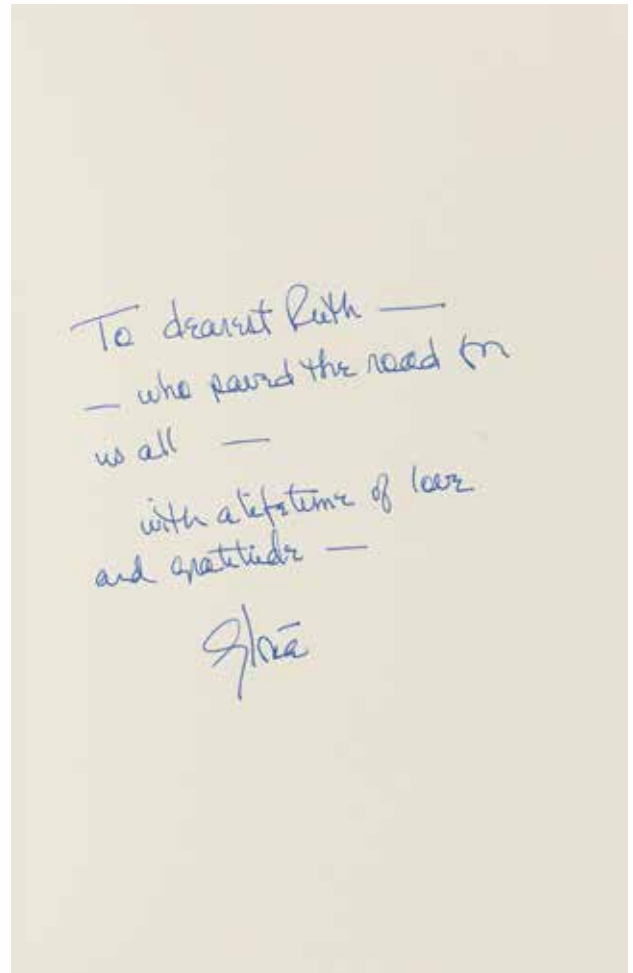 To dearest Ruth —
— who paved the road for
us all —
with a lifetime of love
and gratitude —
Gloria